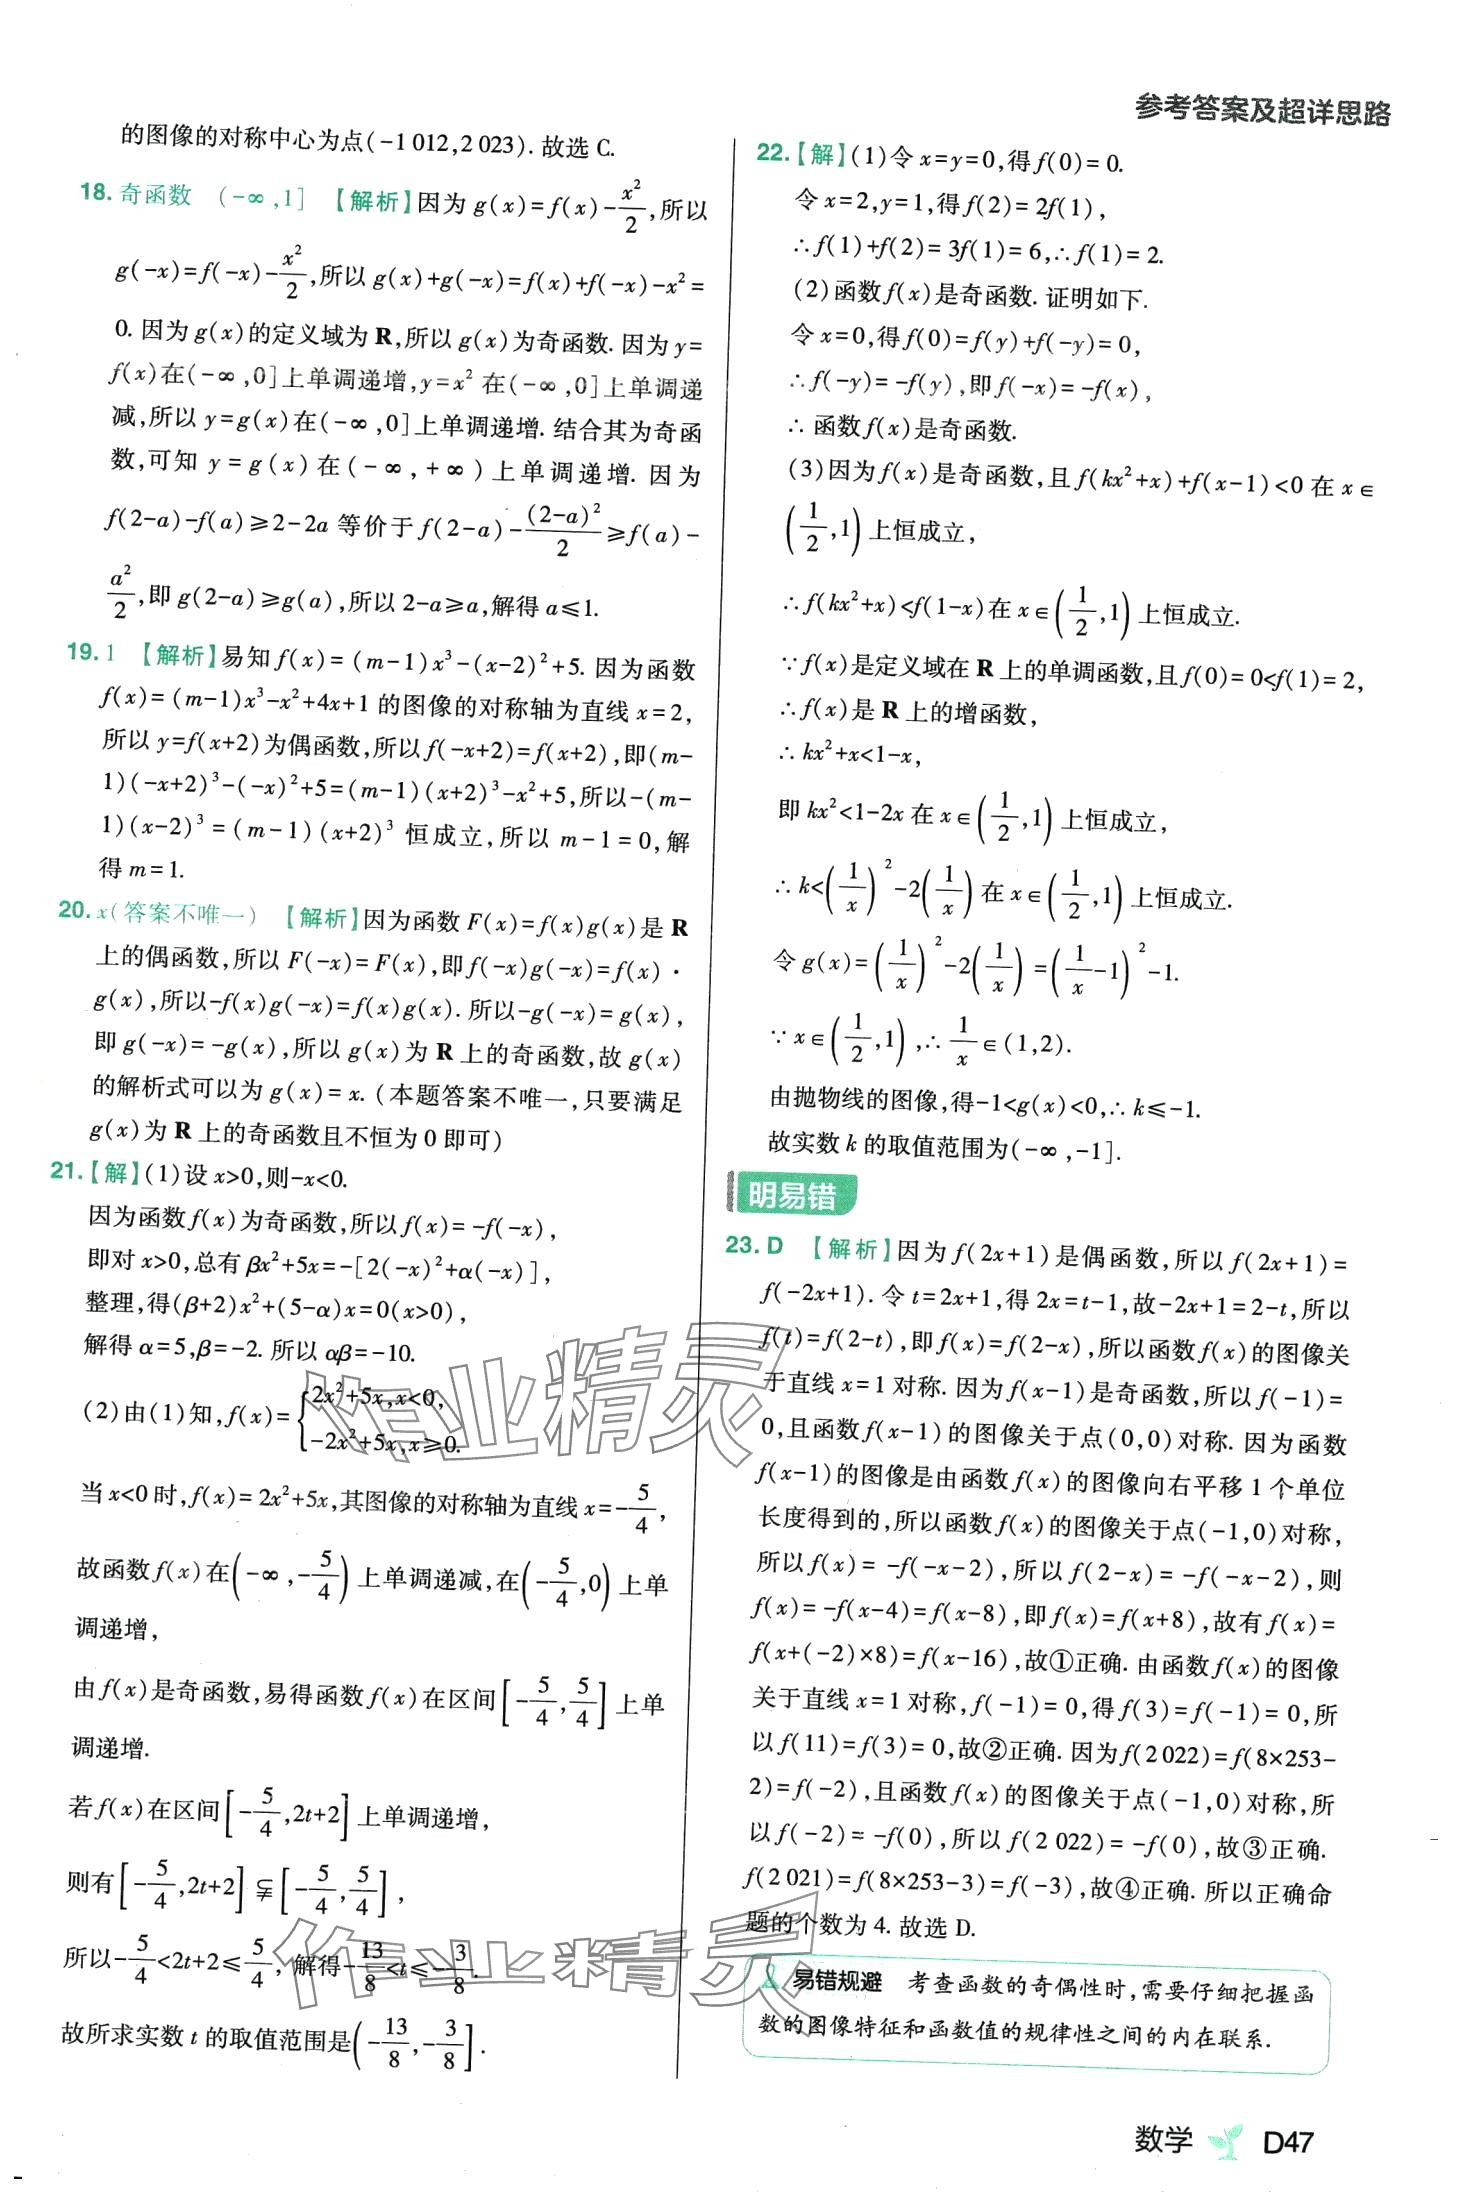 参考答案及超详思路
的图像的对称中心为点(-1 012,2 023). 故选 C.
18. 奇函数 (-∞,1] 【解析】因为 g(x)=f(x)-x²/2,所以
g(-x)=f(-x)-x²/2,所以 g(x)+g(-x)=f(x)+f(-x)-x²=
0. 因为 g(x)的定义域为 R,所以 g(x)为奇函数. 因为 y=
f(x)在(-∞,0]上单调递增,y=x² 在(-∞,0]上单调递
减,所以 y=g(x)在(-∞,0]上单调递增. 结合其为奇函
数,可知 y=g(x)在(-∞,+∞)上单调递增. 因为
f(2-a)-f(a)≥2-2a 等价于 f(2-a)-(2-a)²/2≥f(a)-
a²/2,即 g(2-a)≥g(a),所以 2-a≥a,解得 a≤1.
19. 1 【解析】易知 f(x)=(m-1)x³-(x-2)²+5. 因为函数
f(x)=(m-1)x³-x²+4x+1 的图像的对称轴为直线 x=2,
所以 y=f(x+2)为偶函数,所以 f(-x+2)=f(x+2),即(m-
1)(-x+2)³-(-x)²+5=(m-1)(x+2)³-x²+5,所以-(m-
1)(x-2)³=(m-1)(x+2)³ 恒成立,所以 m-1=0,解
得 m=1.
20. x(答案不唯一) 【解析】因为函数 F(x)=f(x)g(x)是 R
上的偶函数,所以 F(-x)=F(x),即 f(-x)g(-x)=f(x)·
g(x),所以-f(x)g(-x)=f(x)g(x). 所以-g(-x)=g(x),
即 g(-x)=-g(x),所以 g(x)为 R 上的奇函数,故 g(x)
的解析式可以为 g(x)=x. (本题答案不唯一,只要满足
g(x)为 R 上的奇函数且不恒为 0 即可)
21.【解】(1)设 x>0,则-x<0.
因为函数 f(x)为奇函数,所以 f(x)=-f(-x),
即对 x>0,总有 βx²+5x=-[2(-x)²+α(-x)],
整理,得(β+2)x²+(5-α)x=0(x>0),
解得 α=5,β=-2. 所以 αβ=-10.
(2)由(1)知,f(x)={2x²+5x,x<0,
-2x²+5x,x≥0.
当 x<0 时,f(x)=2x²+5x,其图像的对称轴为直线 x=-5/4,
故函数 f(x)在(-∞,-5/4)上单调递减,在(-5/4,0)上单
调递增,
由 f(x)是奇函数,易得函数 f(x)在区间[-5/4,5/4]上单
调递增.
若 f(x)在区间[-5/4,2t+2]上单调递增,
则有[-5/4,2t+2]⫋[-5/4,5/4],
所以-5/4<2t+2≤5/4,解得-13/8<t≤-3/8.
故所求实数 t 的取值范围是(-13/8,-3/8].
22.【解】(1)令 x=y=0,得 f(0)=0.
令 x=2,y=1,得 f(2)=2f(1),
∴f(1)+f(2)=3f(1)=6,∴f(1)=2.
(2)函数 f(x)是奇函数. 证明如下.
令 x=0,得 f(0)=f(y)+f(-y)=0,
∴f(-y)=-f(y),即 f(-x)=-f(x),
∴函数 f(x)是奇函数.
(3)因为 f(x)是奇函数,且 f(kx²+x)+f(x-1)<0 在 x∈
(1/2,1)上恒成立,
∴f(kx²+x)<f(1-x)在 x∈(1/2,1)上恒成立.
∵f(x)是定义域在 R 上的单调函数,且 f(0)=0<f(1)=2,
∴f(x)是 R 上的增函数,
∴kx²+x<1-x,
即 kx²<1-2x 在 x∈(1/2,1)上恒成立,
∴k<(1/x)²-2(1/x)在 x∈(1/2,1)上恒成立.
令 g(x)=(1/x)²-2(1/x)=(1/x-1)²-1.
∵x∈(1/2,1),∴1/x∈(1,2).
由抛物线的图像,得-1<g(x)<0,∴k≤-1.
故实数 k 的取值范围为(-∞,-1].
明易错
23. D 【解析】因为 f(2x+1)是偶函数,所以 f(2x+1)=
f(-2x+1). 令 t=2x+1,得 2x=t-1,故-2x+1=2-t,所以
f(t)=f(2-t),即 f(x)=f(2-x),所以函数 f(x)的图像关
于直线 x=1 对称. 因为 f(x-1)是奇函数,所以 f(-1)=
0,且函数 f(x-1)的图像关于点(0,0)对称. 因为函数
f(x-1)的图像是由函数 f(x)的图像向右平移 1 个单位
长度得到的,所以函数 f(x)的图像关于点(-1,0)对称,
所以 f(x)=-f(-x-2),所以 f(2-x)=-f(-x-2),则
f(x)=-f(x-4)=f(x-8),即 f(x)=f(x+8),故有 f(x)=
f(x+(-2)×8)=f(x-16),故①正确. 由函数 f(x)的图像
关于直线 x=1 对称,f(-1)=0,得 f(3)=f(-1)=0,所
以 f(11)=f(3)=0,故②正确. 因为 f(2 022)=f(8×253-
2)=f(-2),且函数 f(x)的图像关于点(-1,0)对称,所
以 f(-2)=-f(0),所以 f(2 022)=-f(0),故③正确.
f(2 021)=f(8×253-3)=f(-3),故④正确. 所以正确命
题的个数为 4. 故选 D.
易错规避 考查函数的奇偶性时,需要仔细把握函
数的图像特征和函数值的规律性之间的内在联系.
作业精灵
作业精灵
数学 D47